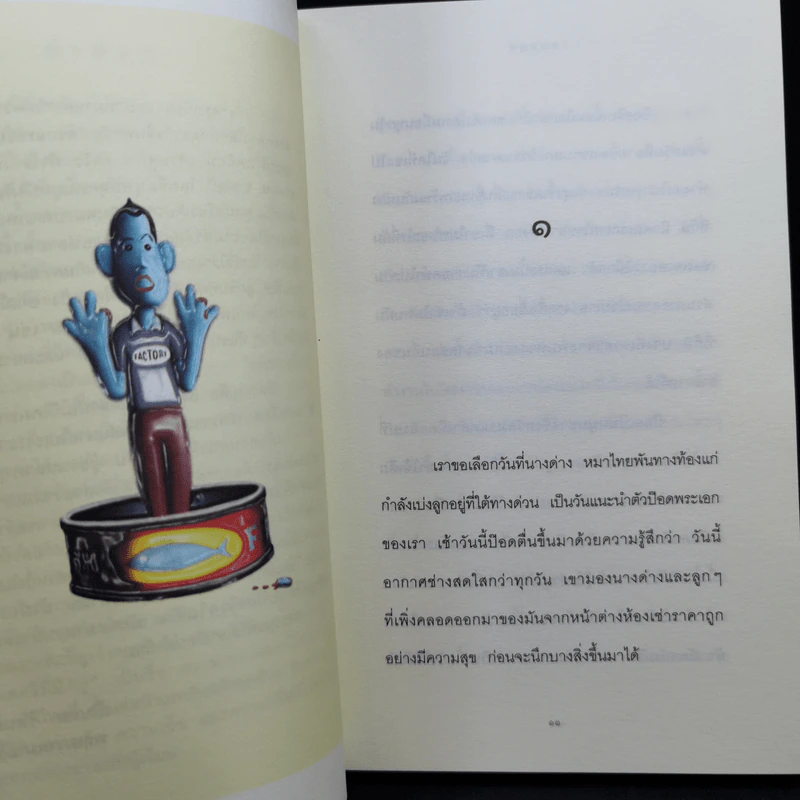 FACTORY
๑
เราขอเลือกวันที่นางด่าง หมาไทยพันทางท้องแก่
กำลังเบ่งลูกอยู่ที่ใต้ทางด่วน เป็นวันแนะนำตัวป๊อดพระเอก
ของเรา เช้าวันนี้ป๊อดตื่นขึ้นมาด้วยความรู้สึกว่า วันนี้
อากาศช่างสดใสกว่าทุกวัน เขามองนางด่างและลูกๆ
ที่เพิ่งคลอดออกมาของมันจากหน้าต่างห้องเช่าราคาถูก
อย่างมีความสุข ก่อนจะนึกบางสิ่งขึ้นมาได้
๑๑